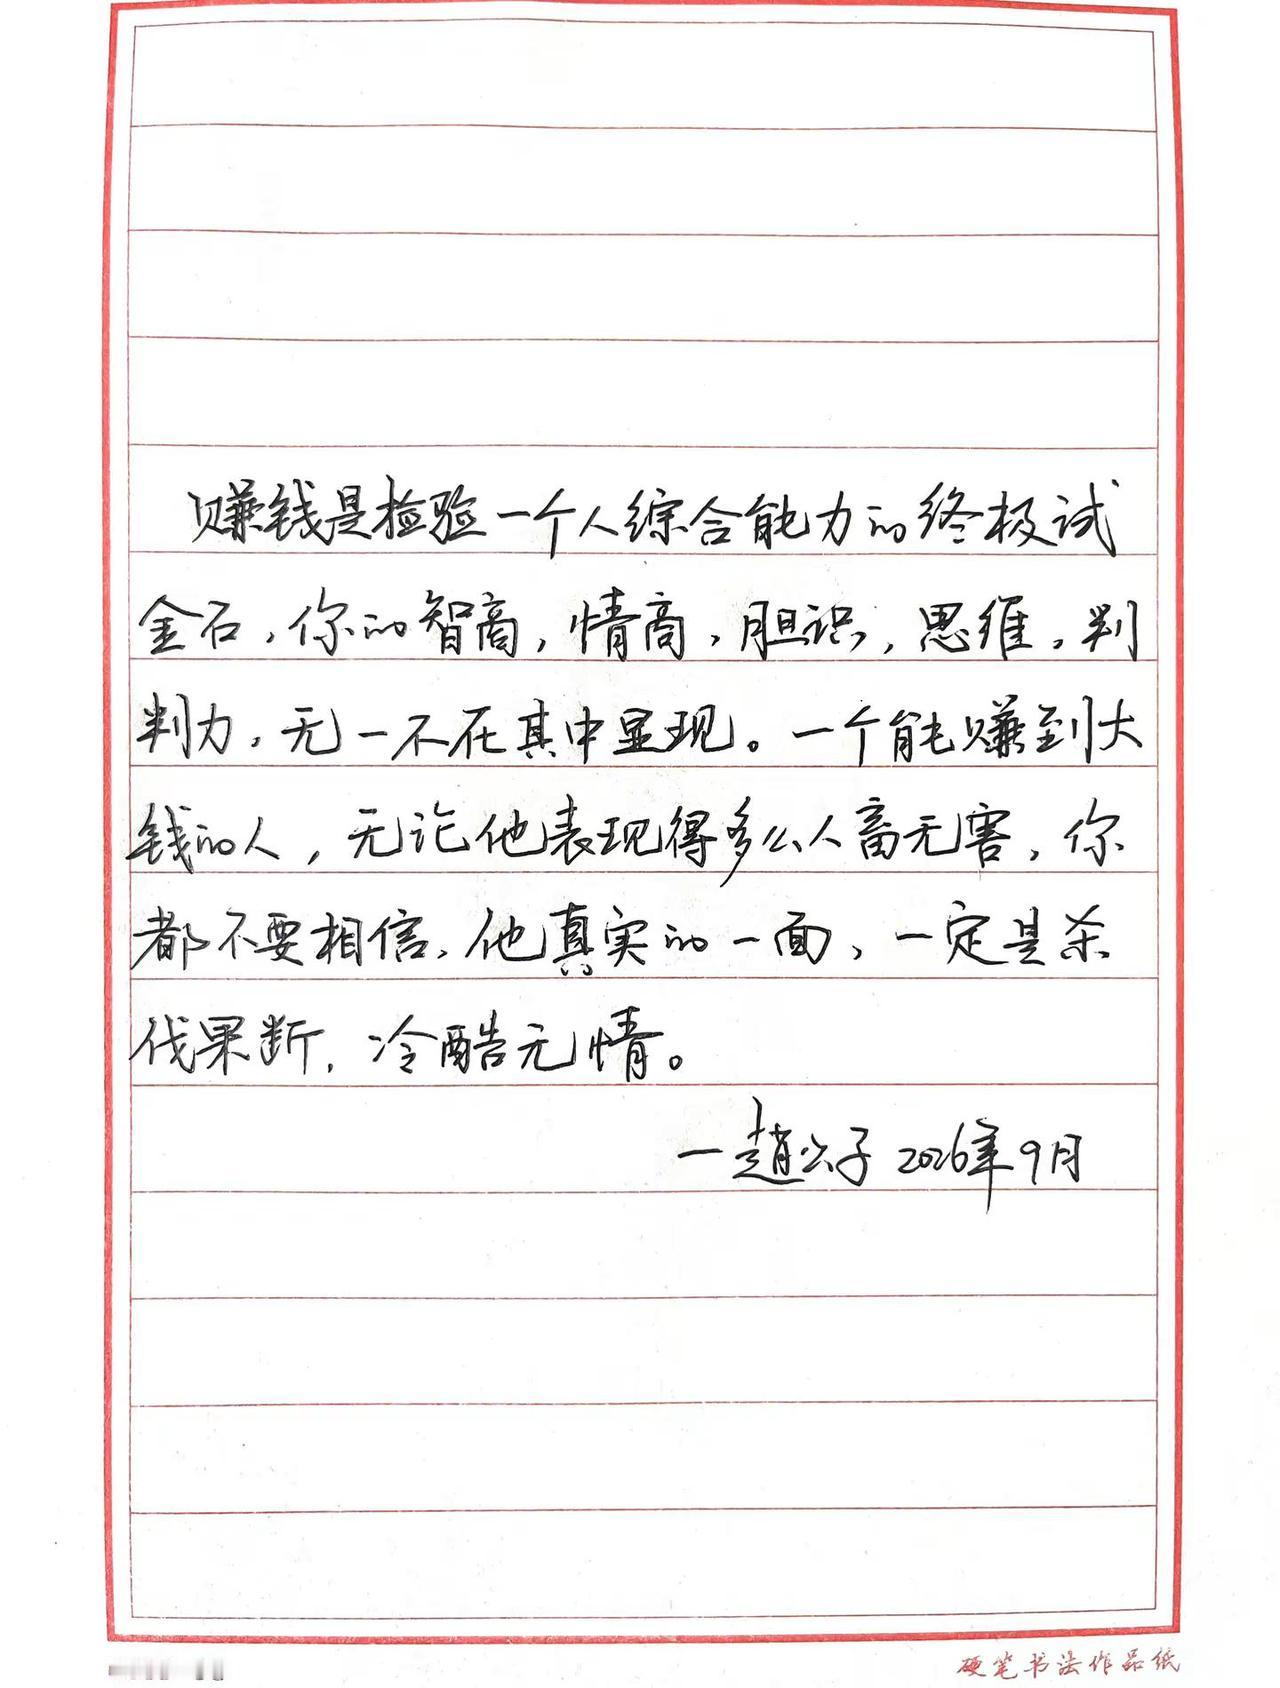 赚钱是检验一个人综合能力的终极试
金石,你的智商,情商,胆识,思维,判
判力,无一不在其中显现。一个能赚到大
钱的人,无论他表现得多么人畜无害,你
都不要相信,他真实的一面,一定是杀
伐果断,冷酷无情。
一趙公子 2026年9月
硬笔书法作品纸